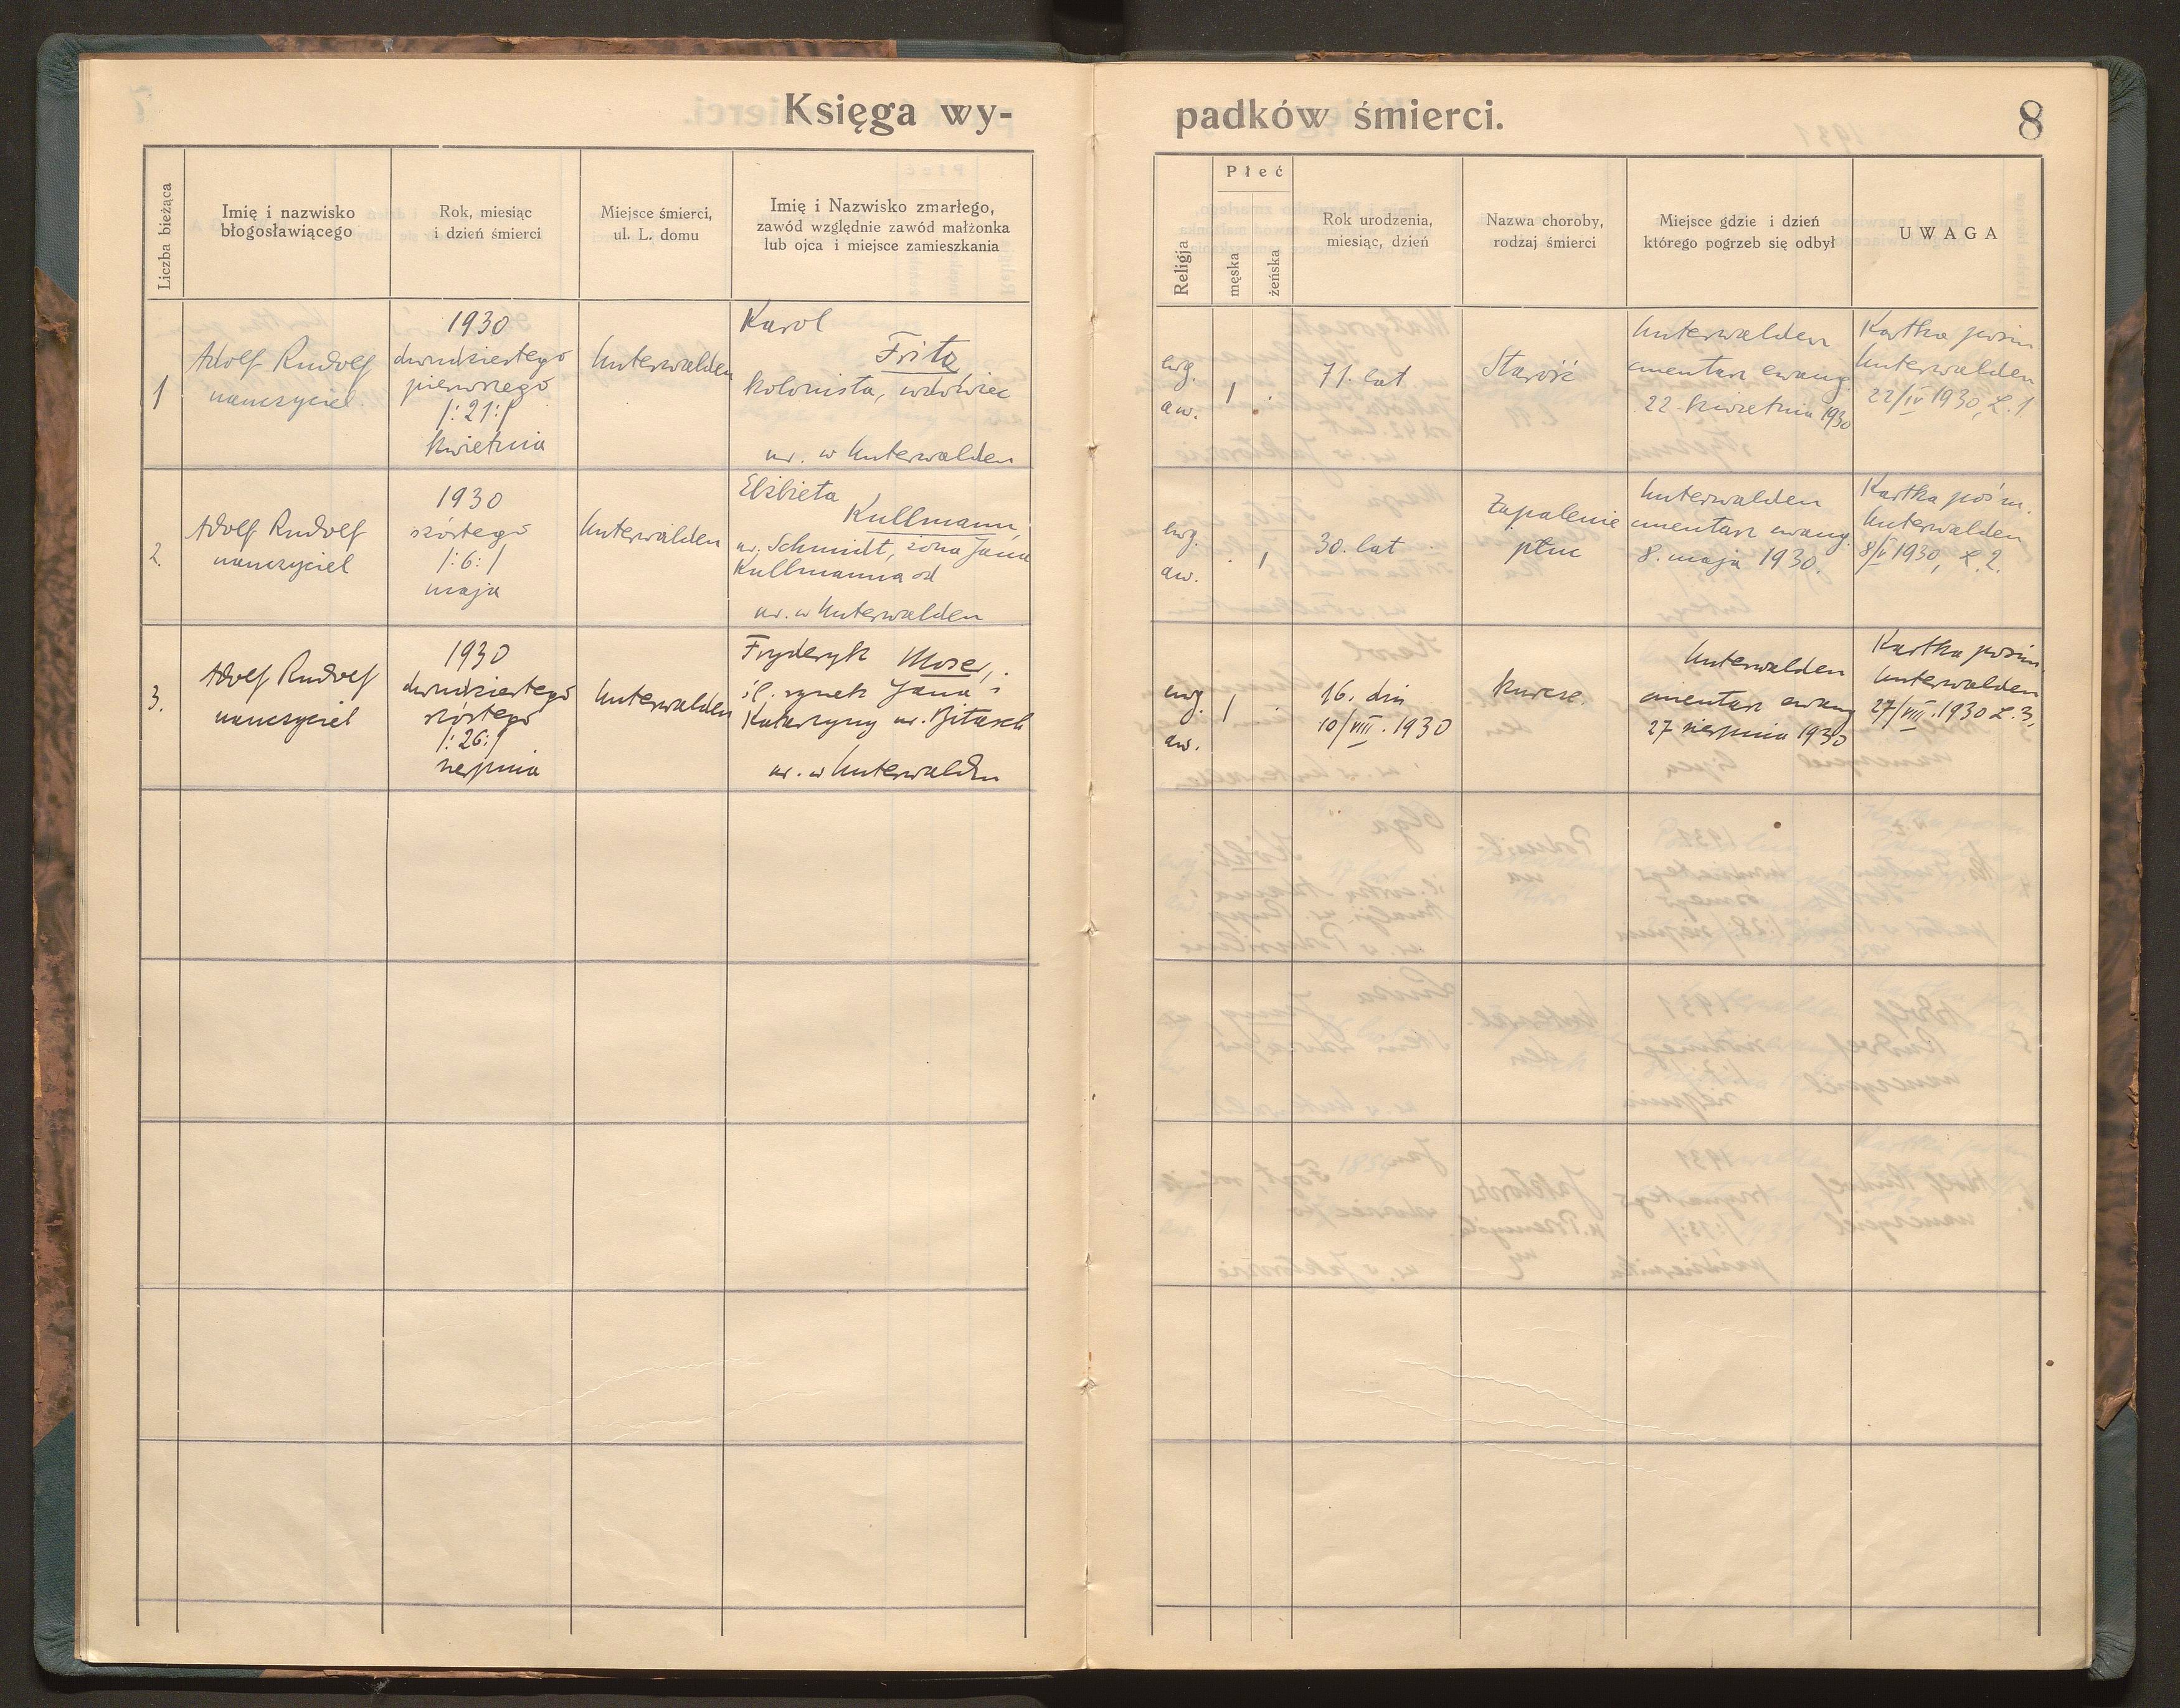 Księga wy-
padków śmierci.
8
Liczba bieżąca
Imię i nazwisko
błogosławiącego
Rok, miesiąc
i dzień śmierci
Miejsce śmierci,
ul. L. domu
Imię i Nazwisko zmarłego,
zawód względnie zawód małżonka
lub ojca i miejsce zamieszkania
Religja
Płeć
męska
żeńska
Rok urodzenia,
miesiąc, dzień
Nazwa choroby,
rodzaj śmierci
Miejsce gdzie i dzień
którego pogrzeb się odbył
UWAGA
1
Adolf Rudolf
nauczyciel.
1930
dwudziestego
pierwszego
/:21:/
kwietnia
Unterwalden
Karol
Fritz
kolonista, wdowiec
ur. w Unterwalden
ewg.
aw.
1
71. lat
Starość
Unterwalden
cmentarz ewang.
22. kwietnia 1930
Kartka pośm.
Unterwalden
22/IV 1930, L. 1
2.
Adolf Rudolf
nauczyciel
1930
szóstego
/:6:/
maja
Unterwalden
Elżbieta
Kullmann
ur. Schmidt, żona Jana
Kullmanna
ur. w Unterwalden
ewg.
aw.
1
30. lat
Zapalenie
płuc
Unterwalden
cmentarz ewang.
8. maja 1930.
Kartka pośm.
Unterwalden
8/V 1930, L. 2.
3.
Adolf Rudolf
nauczyciel
1930
dwudziestego
szóstego
/:26:/
sierpnia
Unterwalden
Fryderyk Moser,
śl. synek Jana i
Katarzyny ur.
ur. w Unterwalden
ewg.
aw.
1
16. dni
10/VIII. 1930
kurcze.
Unterwalden
cmentarz ewang
27 sierpnia 1930
Kartka pośm.
Unterwalden
27/VIII. 1930 L. 3,